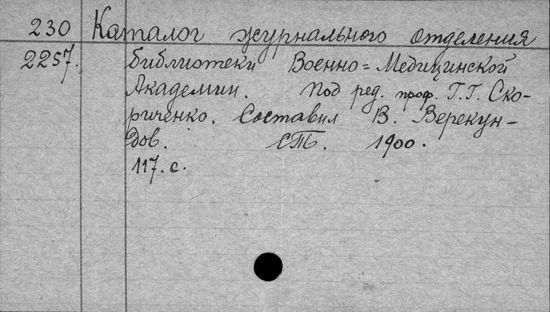 230 Каталог журнального отделения
2257. библиотеки Военно=Медицинской
Академии. Под ред. проф. Г.Г. Ско-
риченко. Составил В. Верекун-
дов. СПб. 1900.
117. с.